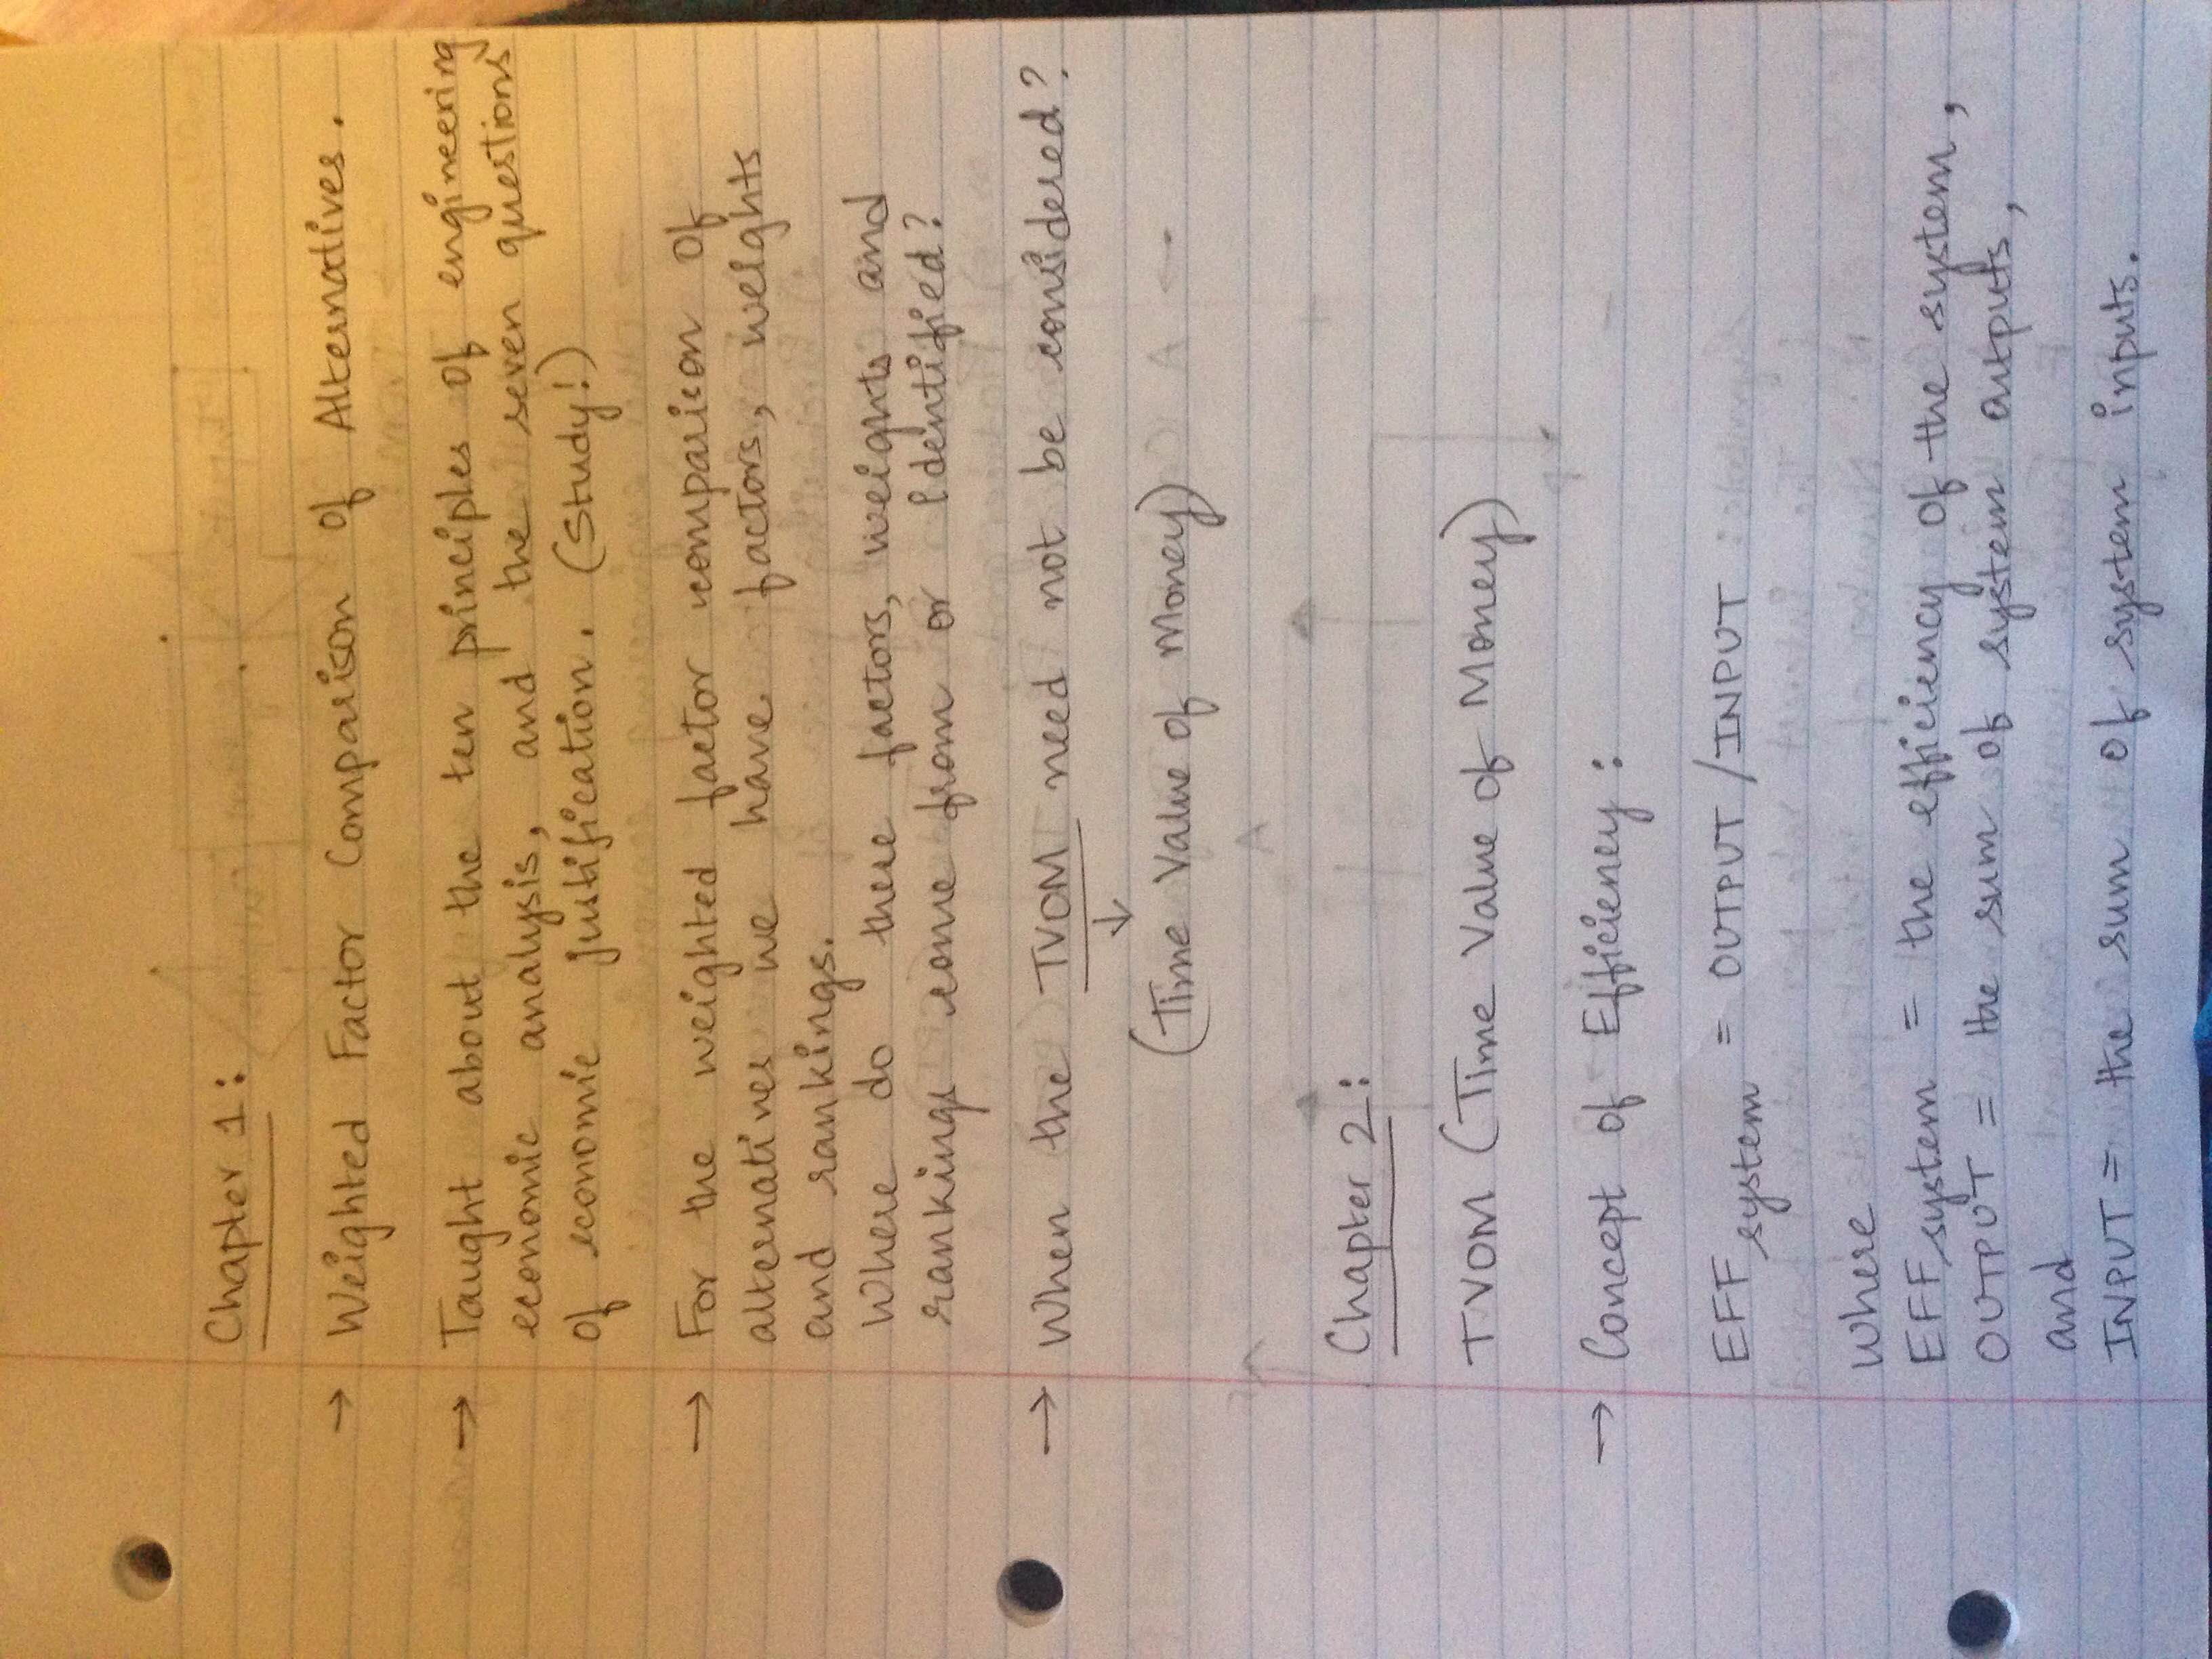 Chapter 1:
→ Weighted Factor Comparison of Alternatives.
→ Taught about the ten principles of engineering
economic analysis, and the seven questions
of economic justification. (Study!)
→ For the weighted factor comparison of
alternatives we have factors, weights
and rankings.
Where do these factors, weights and
rankings come from or identified?
→ When the TVOM need not be considered?
↓
(Time Value of Money)
Chapter 2:
TVOM (Time Value of Money)
→ Concept of Efficiency:
EFF system = OUTPUT/INPUT
Where
EFF system = the efficiency of the system,
OUTPUT = the sum of system outputs,
and
INPUT = the sum of system inputs.